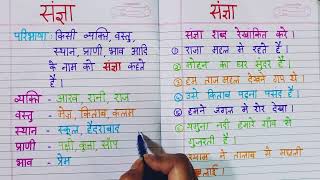 संज्ञा
परिभाषा: किसी व्यक्ति, वस्तु,
स्थान, प्राणी, भाव आदि
के नाम को संज्ञा कहते
हैं।
व्यक्ति - आरव, रानी, राज
वस्तु - मेज, किताब, कलम
स्थान - स्कूल, हैदराबाद
प्राणी - पक्षी, कुत्ता, साँप
भाव - प्रेम
संज्ञा
संज्ञा शब्द रेखांकित करें।
① राजा महल में रहते हैं।
② मोहन का घर सुंदर है।
③ हम ताज महल देखने गए थे।
④ उसे किताब पढ़ना पसंद है।
⑤ हमने जंगल में शेर देखा।
यमुना नदी हमारे गाँव से
गुजरती है।
तालाब में मछली